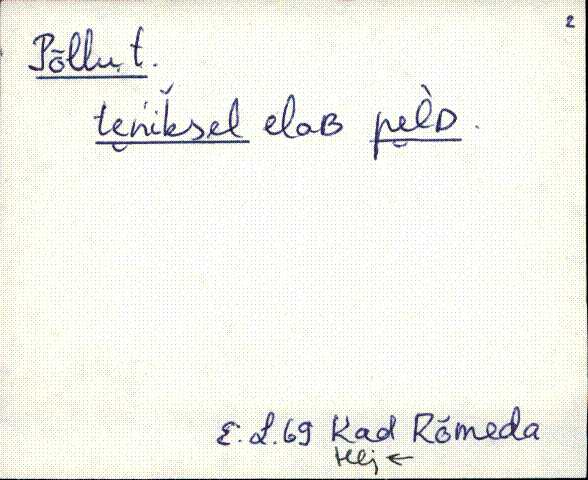 2
Põllu t.
tẹniksel elaʙ pelᴅ.
E. L. 69 Kad Rõmeda
Hlj ←